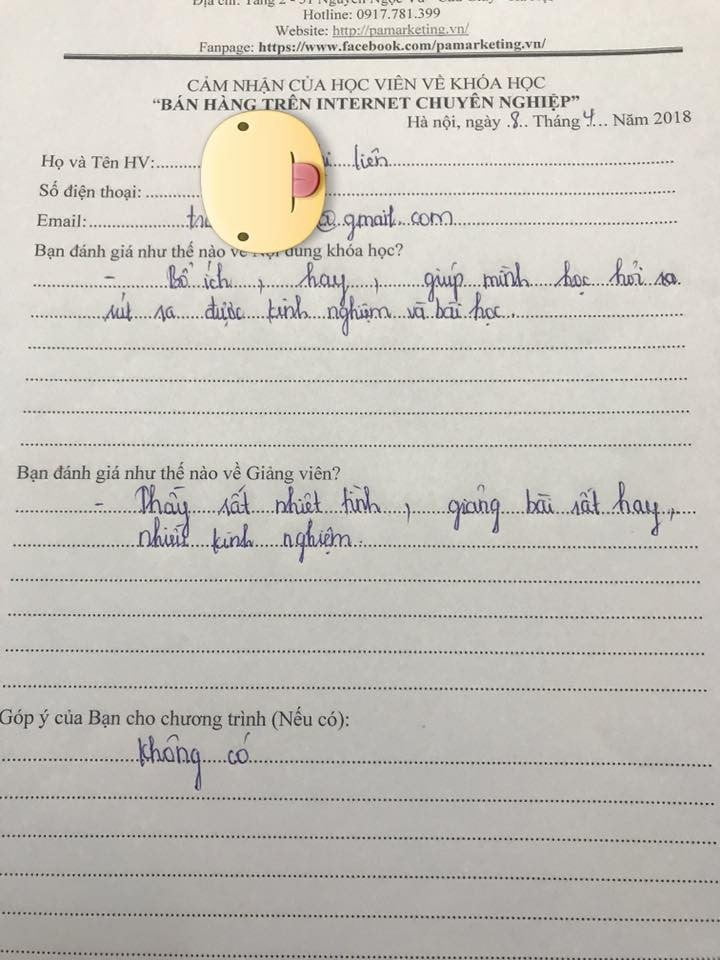 Địa chỉ: Tầng 2 - 51 Nguyễn Ngọc Vũ - Cầu Giấy - Hà Nội
Hotline: 0917.781.399
Website: http://pamarketing.vn/
Fanpage: https://www.facebook.com/pamarketing.vn/
CẢM NHẬN CỦA HỌC VIÊN VỀ KHÓA HỌC
“BÁN HÀNG TRÊN INTERNET CHUYÊN NGHIỆP”
Hà nội, ngày 8 Tháng 4 Năm 2018
Họ và Tên HV: liên
Số điện thoại:
Email: @gmail.com
Bạn đánh giá như thế nào về Nội dung khóa học?
- Bổ ích, hay, giúp mình học hỏi ra
rút ra được kinh nghiệm và bài học.
Bạn đánh giá như thế nào về Giảng viên?
- Thầy rất nhiệt tình, giảng bài rất hay,
nhiều kinh nghiệm.
Góp ý của Bạn cho chương trình (Nếu có):
Không có